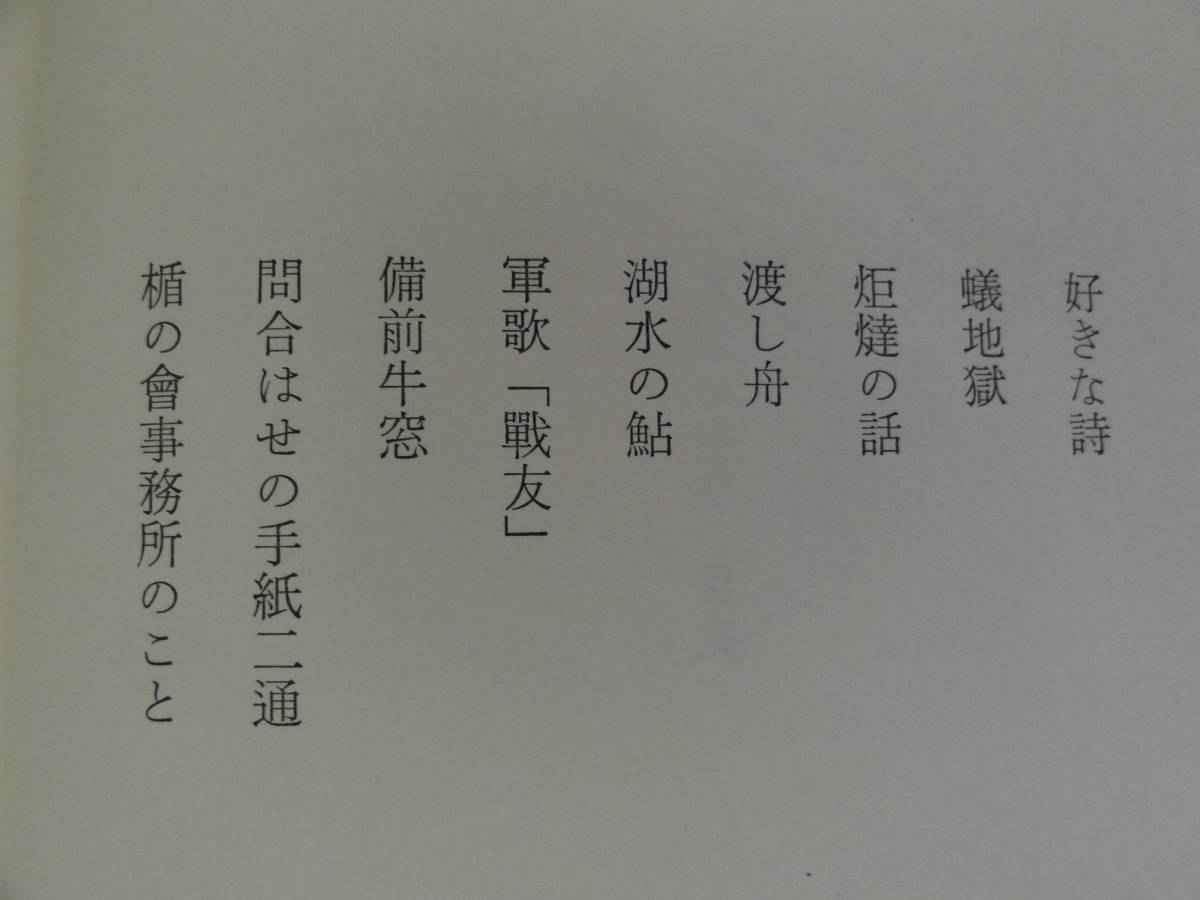 好きな詩
蟻地獄
炬燵の話
渡し舟
湖水の鮎
軍歌「戰友」
備前牛窓
問合はせの手紙二通
楯の會事務所のこと